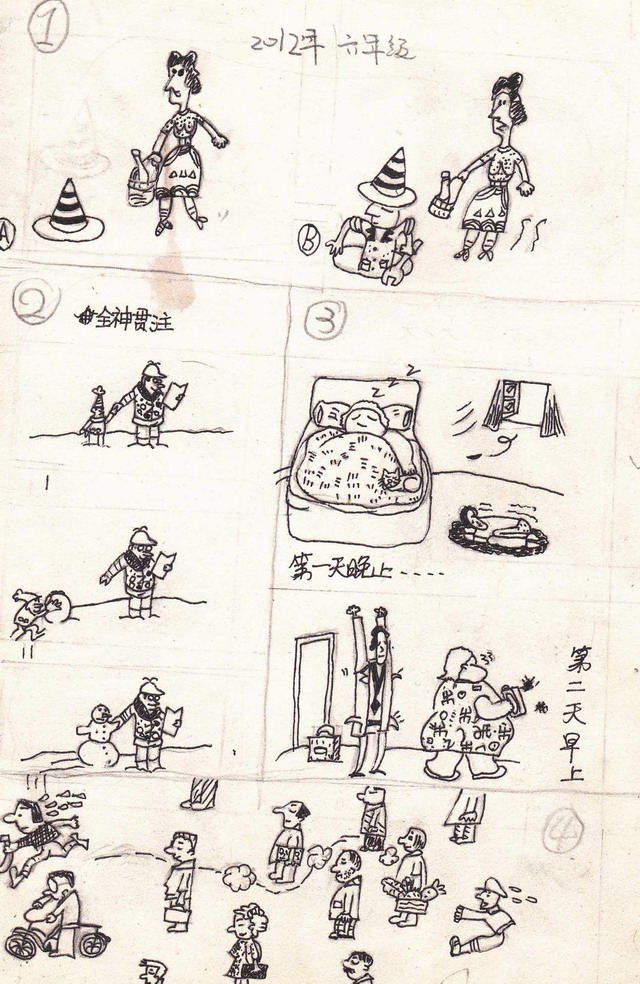 ①
2012年 六年级
A
B
②
全神贯注
③
z z z
第一天晚上.....
第二天早上
④